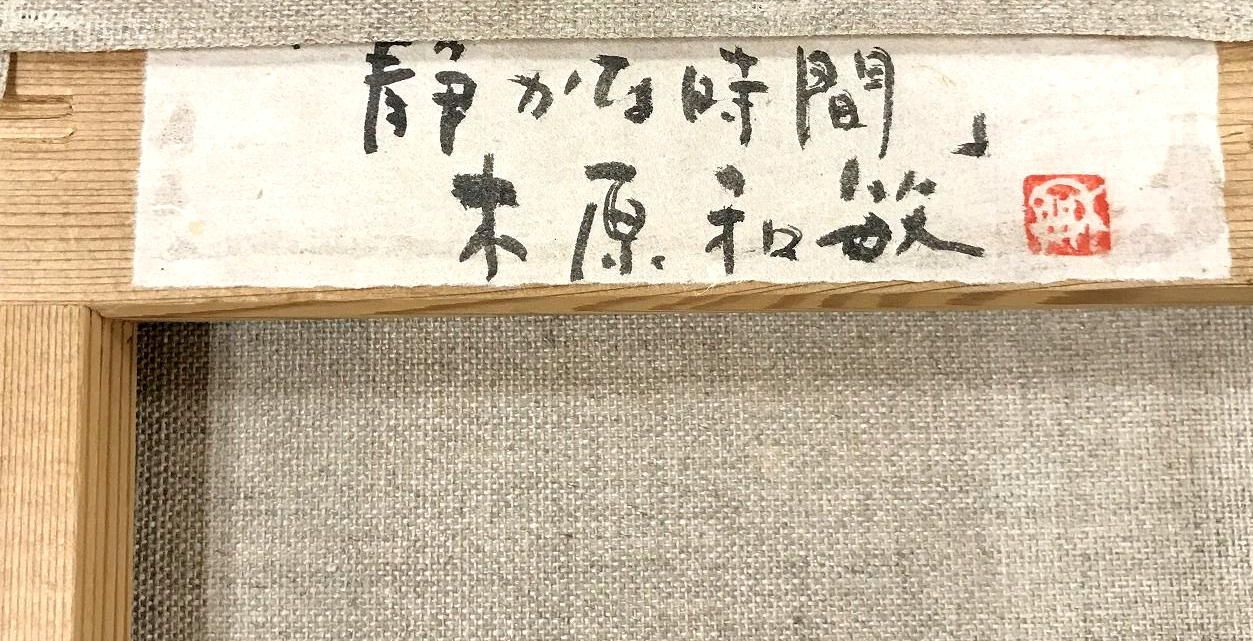 静かな時間」
木原和敏